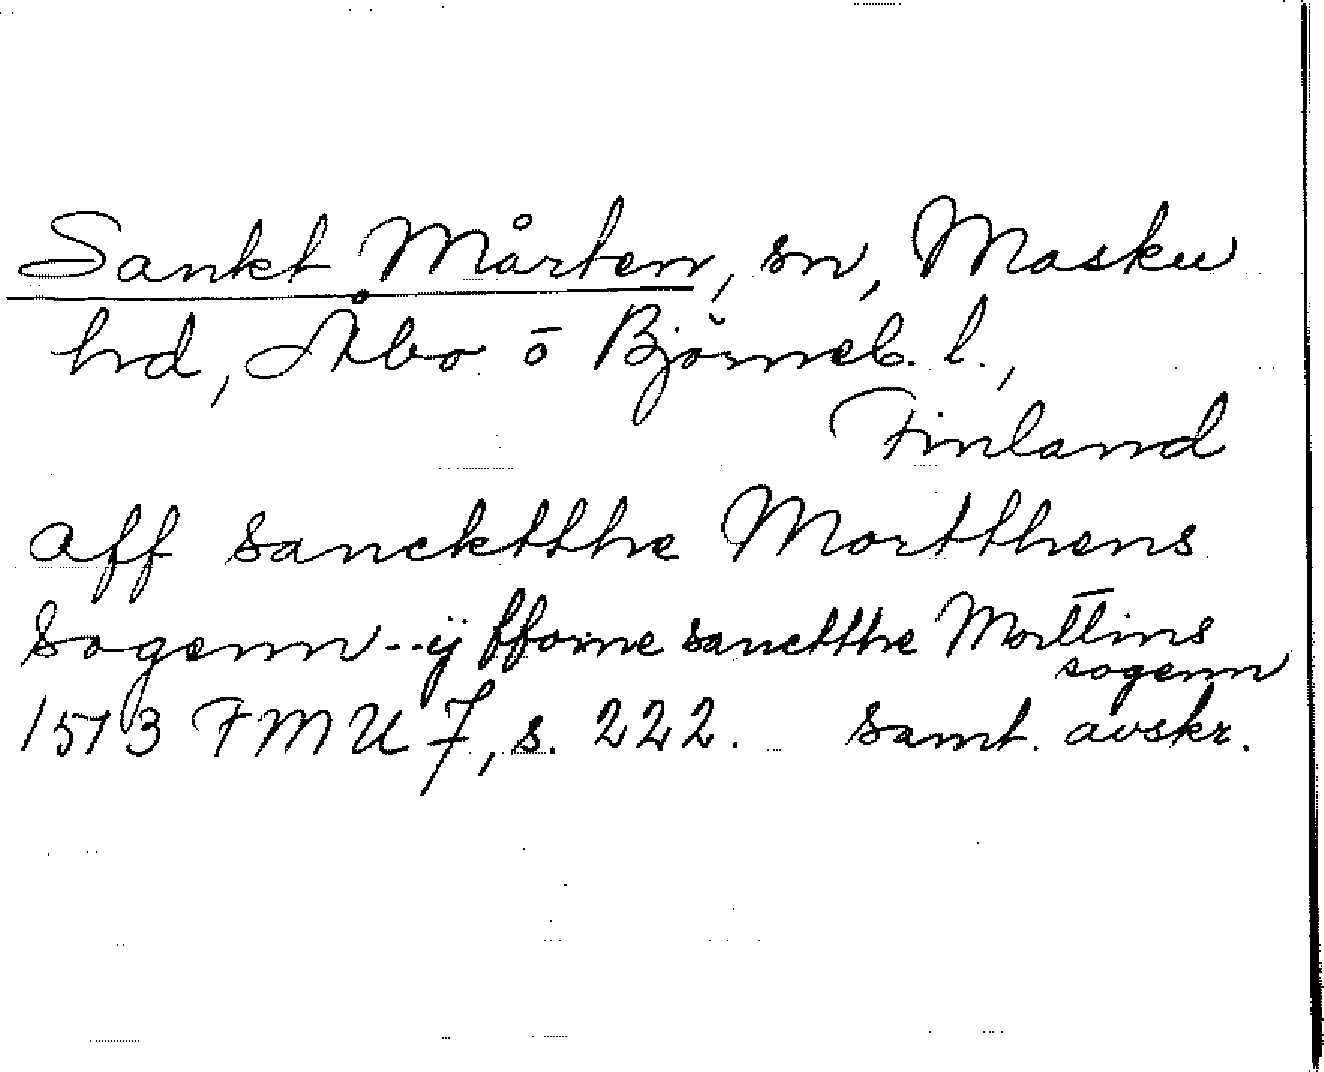 Sankt Mårten, sn, Masku
hd, Åbo o Björneb. l.,
Finland
aff sancktthe Mortthens
Sogenn--ÿ fforne sanctthe Morttins
sogenn
1513 FMU 7, s. 222. samt. avskr.